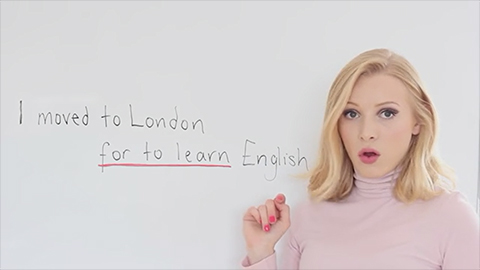 I moved to London
for to learn English